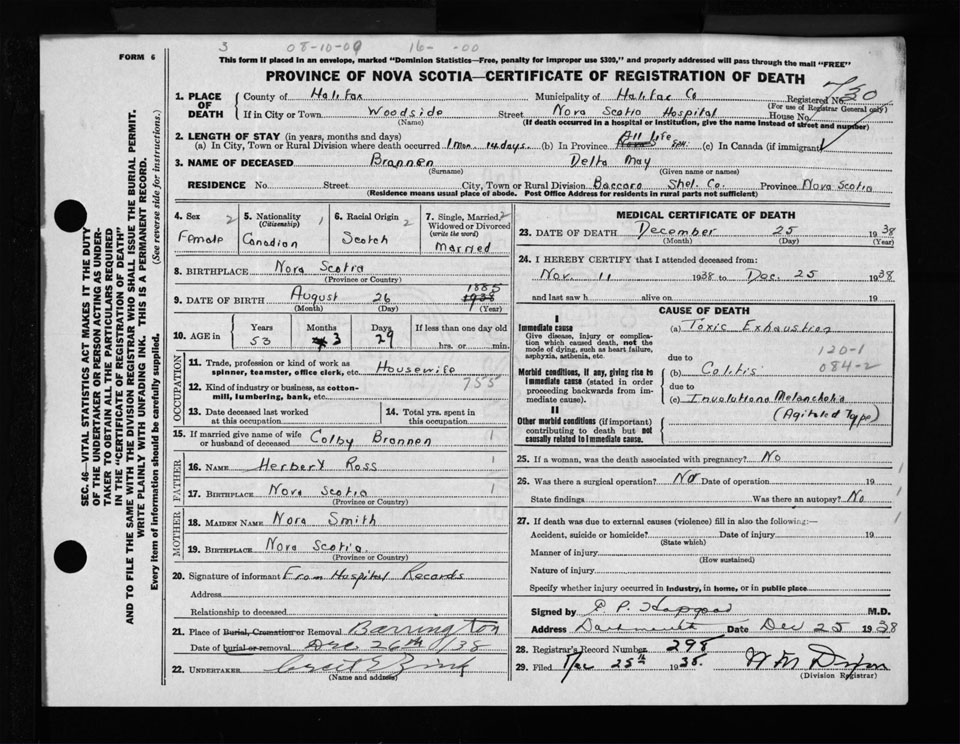 3 08-10-09 16- -00
FORM 6
This form if placed in an envelope, marked "Dominion Statistics—Free, penalty for improper use $300," and properly addressed will pass through the mail "FREE"
PROVINCE OF NOVA SCOTIA—CERTIFICATE OF REGISTRATION OF DEATH
1. PLACE OF DEATH County of Halifax Municipality of Halifax Co Registered No.
(For use of Registrar General only)
If in City or Town Woodside Street Nova Scotia Hospital House No.
(Name) (If death occurred in a hospital or institution, give the name instead of street and number)
2. LENGTH OF STAY (in years, months and days)
(a) In City, Town or Rural Division where death occurred 1 Mon. 14 days. (b) In Province All life (c) In Canada (if immigrant)
3. NAME OF DECEASED Brannen Delta May
(Surname) (Given name or names)
RESIDENCE No. Street City, Town or Rural Division Baccaro Shel. Co. Province Nova Scotia
(Residence means usual place of abode. Post Office Address for residents in rural parts not sufficient)
4. Sex 2 Female
5. Nationality 1
(Citizenship)
Canadian
6. Racial Origin 2
Scotch
7. Single, Married, 2
Widowed or Divorced
(write the word)
Married
8. BIRTHPLACE Nova Scotia
(Province or Country)
1885
9. DATE OF BIRTH August 26 1938
(Month) (Day) (Year)
10. AGE in Years Months Days If less than one day old
53 3 29 hrs. or min.
OCCUPATION
11. Trade, profession or kind of work as
spinner, teamster, office clerk, etc. Housewife
12. Kind of industry or business, as cotton-
mill, lumbering, bank, etc. 755
13. Date deceased last worked
at this occupation
14. Total yrs. spent in
this occupation
15. If married give name of wife
or husband of deceased Colby Brannen 1
FATHER
16. NAME Herbert Ross 1
17. BIRTHPLACE Nova Scotia 1
(Province or Country)
MOTHER
18. MAIDEN NAME Nora Smith
19. BIRTHPLACE Nova Scotia.
(Province or Country)
20. Signature of informant From Hospital Records
Address
Relationship to deceased
21. Place of Burial, Cremation or Removal Barrington
Date of burial or removal Dec 26th/38
22. UNDERTAKER
(Name and address)
MEDICAL CERTIFICATE OF DEATH
23. DATE OF DEATH December 25 1938
(Month) (Day) (Year)
24. I HEREBY CERTIFY that I attended deceased from:
Nov. 11 1938 to Dec. 25 1938
and last saw h alive on 19
CAUSE OF DEATH
I
Immediate cause
Give disease, injury or complica-
tion which caused death, not the
mode of dying, such as heart failure,
asphyxia, asthenia, etc.
(a) Toxic Exhaustion
due to 120-1
Morbid conditions, if any, giving rise to
immediate cause (stated in order
proceeding backwards from im-
mediate cause).
(b) Colitis 084-2
due to
(c) Involutiona Melancholia
(Agitated Type)
II
Other morbid conditions (if important)
contributing to death but not
causally related to immediate cause.
25. If a woman, was the death associated with pregnancy? No
26. Was there a surgical operation? No Date of operation 19
State findings Was there an autopsy? No
27. If death was due to external causes (violence) fill in also the following:—
Accident, suicide or homicide? Date of injury 19
(State which)
Manner of injury
(How sustained)
Nature of injury
Specify whether injury occurred in industry, in home, or in public place
Signed by M.D.
Address Dartmouth Date Dec 25 1938
28. Registrar's Record Number 298
29. Filed Dec 25th 1938.
(Division Registrar)
SEC. 46—VITAL STATISTICS ACT MAKES IT THE DUTY
OF THE UNDERTAKER OR PERSON ACTING AS UNDER-
TAKER TO OBTAIN ALL THE PARTICULARS REQUIRED
IN THE "CERTIFICATE OF REGISTRATION OF DEATH"
AND TO FILE THE SAME WITH THE DIVISION REGISTRAR WHO SHALL ISSUE THE BURIAL PERMIT.
WRITE PLAINLY WITH UNFADING INK. THIS IS A PERMANENT RECORD.
Every item of information should be carefully supplied. (See reverse side for instructions.)